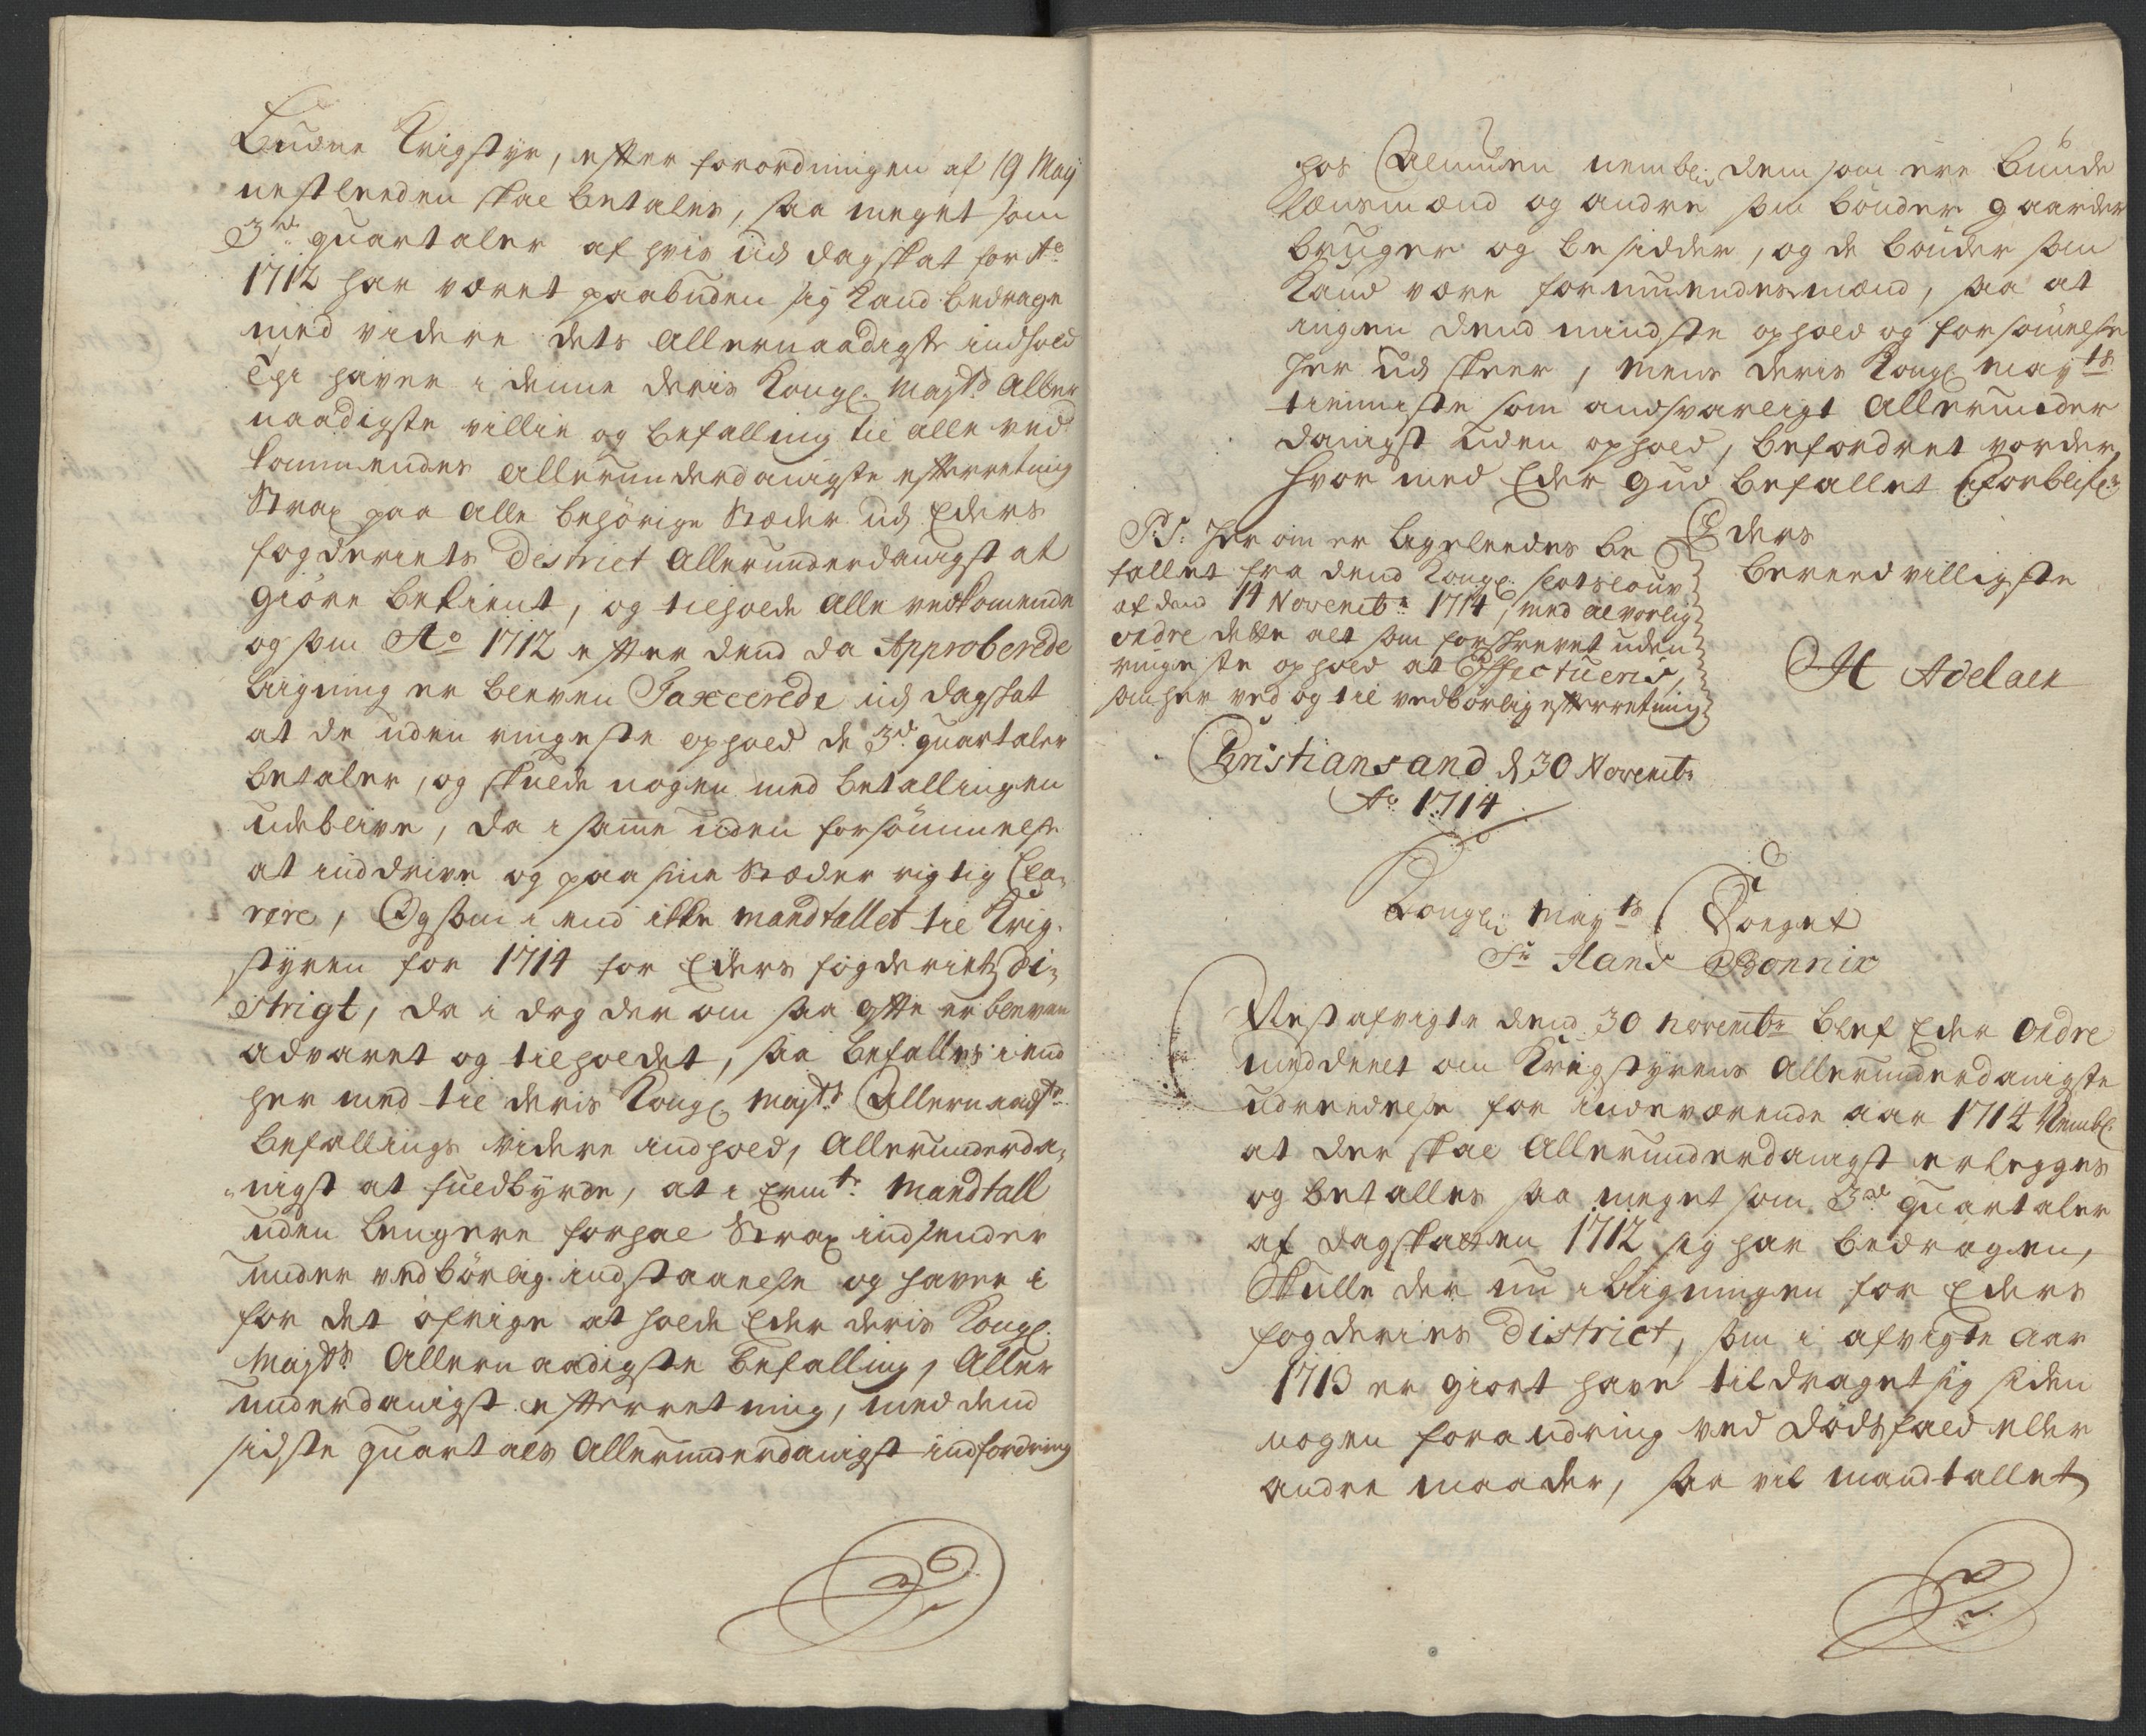 budne Krigstyr, efter forordningen af 19 Maij
nestleeden skal betales, saa meget som
3de quartaler af hvis udj dagskat for Ao
1712 har været paabuden sig kand bedrage
med videre dets allernaadigste indhold
Thi haver i denne deris Kongl. Mayts Aller
naadigste villie og befalling til alle ved
kommendes allerunderdanigste efterretning
Strax paa alle behörige stæder udj Eders
fogderiets District allerunderdanigst at
giöre bekient, og tilholde alle vedkomende
og som Ao 1712 efter dend da Approberede
Ligning er bleven Taxcerede udj dagskat
at de uden ringeste ophold de 3de quartaler
betaler, og skulde nogen med betallingen
udeblive, da i samme uden forsömmelse
at inddrive og paa sine stæder rigtig Cla-
rere, Og som i end ikke mandtallet til Krig-
styren for 1714 for Eders fogderiets Di-
strigt, da i dog der om saa ofte er bleven
advaret og tilholdet, saa befalles i end
her med til deris Kongl. Mayts Allernaadste
befallings videre indhold, allerunderda-
nigst at fuldbyrde, at i Ermte mandtall
uden lengere forhal Strax indsender
under vedbörlig indstaaelse og haver i
for det öfrige at holde Eder deris Kongl.
Mayts Allernaadigste befalling, Aller
underdanigst efterretning, med dend
sidste quartals allerunderdanigst indfordring
hos Almuen nembl. dem som ere bunde
Lensmænd og andre som bönder gaarder
bruger og besidder, og de bönder som
Kand være formuendesmænd, saa at
ingen dend mindste ophold og forsömmelse
her udj skeer, mens deris Kongl. Mayts
tienniste som andsvarligt allerunder
danigst uden ophold, befordret vorder,
hvor med Eder Gud befallet forblifr
Eders
beredvilligste
H Adelaer
P.S. her om er ligeleedes be
fallet fra dend Kongl. slotslov
af dend 14 Novembr 1714, med alvorlig
ordre dette alt som forskrevet uden
ringeste ophold at Effectueris,
som her ved og til vedbörlig efterretning
Christiansand d 30 Novembr
Ao 1714
Kongl. Mayts Foeget
Sr Hans Bonnix
Nest afvigte dend 30 novembr blef Eder ordre
meddeelt om Krigstyrens Allerunderdanigste
udreedelse for indeværende aar 1714 Nembl.
at der skal Allerunderdanigst erlegges
og betalles saa meget som 3de quartaler
af dagskatten 1712 sig har bedragen,
Skulle der nu i Ligningen for Eders
fogderies District, som i afvigte aar
1713 er giort have tildraget sig siden
nogen forandring ved dödsfald eller
andre maader, saa vil mandtallet